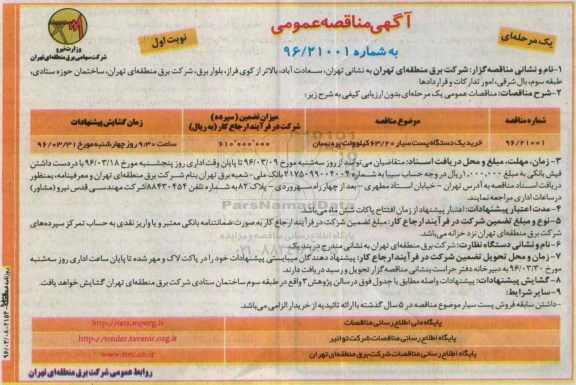 آگهی مناقصه عمومی
یک مرحله‌ای
نوبت اول
به شماره ۹۶/۲۱۰۰۱
وزارت نیرو
شرکت سهامی برق منطقه‌ای تهران
۱-نام و نشانی مناقصه گزار: شرکت برق منطقه‌ای تهران به نشانی تهران، سعادت آباد، بالاتر از کوی فراز، بلوار برق، شرکت برق منطقه‌ای تهران، ساختمان حوزه ستادی،
طبقه سوم، بال شرقی، امور تدارکات و قراردادها
۲-شرح مناقصات: مناقصات عمومی یک مرحله‌ای بدون ارزیابی کیفی به شرح زیر:
شماره مناقصه
موضوع مناقصه
میزان تضمین (سپرده)
شرکت در فرآیند ارجاع کار (به ریال)
زمان گشایش پیشنهادات
۹۶/۲۱۰۰۱
خرید یک دستگاه پست سیار ۶۳/۲۰ کیلوولت پردیسان
۶۱۰٬۰۰۰٬۰۰۰
ساعت ۹:۳۰ روز چهارشنبه مورخ ۹۶/۰۳/۳۱
۳-زمان، مهلت، مبلغ و محل دریافت اسناد: متقاضیان می‌توانند از روز سه‌شنبه مورخ ۹۶/۰۳/۰۹ تا پایان وقت اداری روز پنجشنبه مورخ ۹۶/۰۳/۱۸ با در دست داشتن
فیش بانکی به مبلغ ۱,۰۰۰,۰۰۰ ریال در وجه حساب سیبا به شماره ۲۱۷۵۰۹۹۰۰۴۰۰۴ بانک ملی-شعبه برق تهران بنام شرکت برق منطقه‌ای تهران و معرفینامه، بمنظور
دریافت اسناد مناقصه به آدرس تهران - خیابان استاد مطهری - بعد از چهار راه سهروردی - پلاک ۸۲ به شماره تلفن ۸۸۴۳۰۴۵۴ شرکت مهندسی قدس نیرو (مشاور)
در ساعات اداری مراجعه نمایند.
۴-مدت اعتبار پیشنهادات: اعتبار پیشنهاد از زمان افتتاح پاکات شش ماه می‌باشد.
۵-نوع و مبلغ تضمین شرکت در فرآیند ارجاع کار: مبلغ تضمین شرکت در فرآیند ارجاع کار به صورت ضمانتنامه بانکی معتبر و یا واریز نقدی به حساب تمرکز سپرده‌های
شرکت برق منطقه‌ای تهران نزد خزانه می‌باشد.
۶-نام و نشانی دستگاه نظارت: شرکت برق منطقه‌ای تهران به نشانی مندرج در بند یک
۷-زمان و محل تحویل تضمین شرکت در فرآیند ارجاع کار: پیشنهاد دهندگان میبایستی پیشنهادات خود را در پاکت لاک و مهر شده تا پایان ساعت اداری روز سه‌شنبه
مورخ ۹۶/۰۳/۳۰ به دبیرخانه دفتر حراست بنشانی مناقصه گزار تحویل و رسید دریافت دارند.
۸-گشایش پیشنهادات: پیشنهادات واصله مطابق با جدول فوق در سالن پژوهش ۳ واقع در طبقه سوم ساختمان ستادی شرکت برق منطقه‌ای تهران گشایش خواهد یافت.
۹-سایر شرایط:
-داشتن سابقه فروش پست سیار موضوع مناقصه در ۵ سال گذشته با ارائه تائیدیه از خریدار الزامی می‌باشد.
پایگاه ملی اطلاع رسانی مناقصات
http://iets.mporg.ir
پایگاه اطلاع رسانی مناقصات شرکت توانیر
http://tender.tavanir.org.ir
پایگاه اطلاع رسانی مناقصات شرکت برق منطقه‌ای تهران
www.trec.co.ir
روابط عمومی شرکت برق منطقه‌ای تهران
ParsNamadData